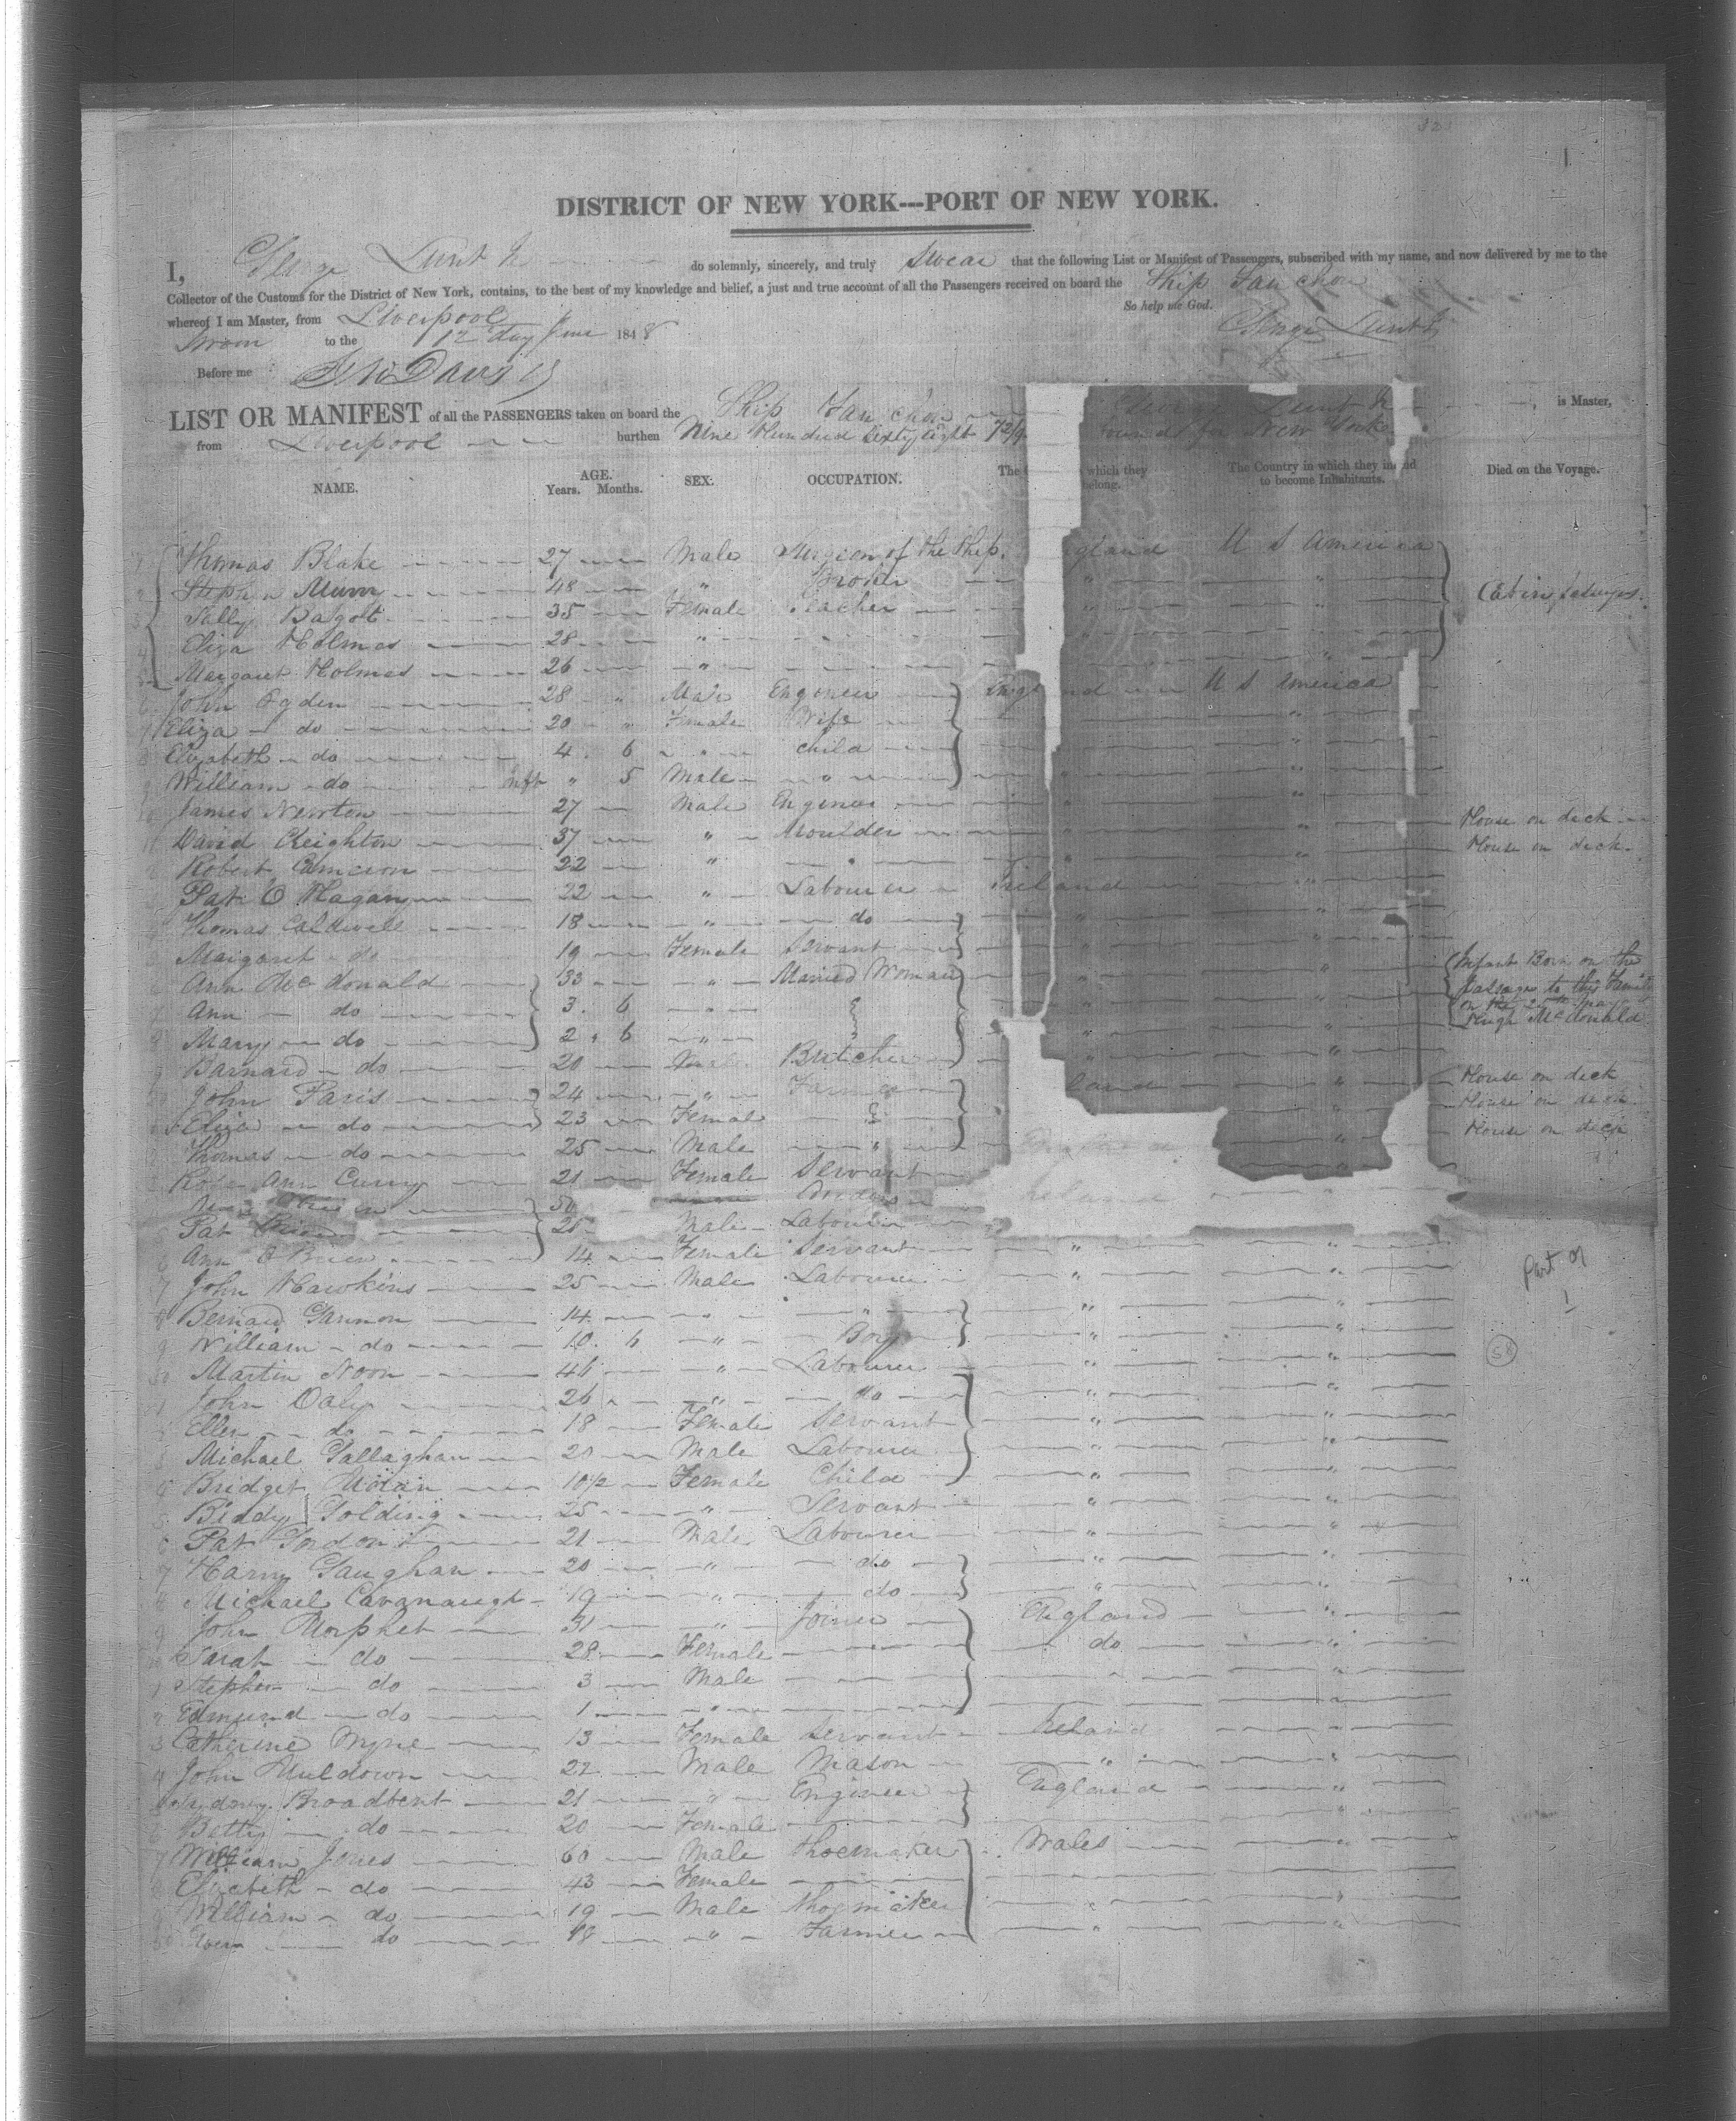 1
DISTRICT OF NEW YORK---PORT OF NEW YORK.
I, George Lunt Jr do solemnly, sincerely, and truly swear that the following List or Manifest of Passengers, subscribed with my name, and now delivered by me to the
Collector of the Customs for the District of New York, contains, to the best of my knowledge and belief, a just and true account of all the Passengers received on board the Ship Fanchon
whereof I am Master, from Liverpool So help me God.
Sworn to the 12 day June 1848 George Lunt Jr
Before me
LIST OR MANIFEST of all the PASSENGERS taken on board the Ship Fanchon George Lunt Jr is Master,
from Liverpool burthen Nine Hundred Sixty eight 72/9 bound for New York
NAME. AGE. Years. Months. SEX. OCCUPATION. The which they belong. The Country in which they in nd to become Inhabitants. Died on the Voyage.
Thomas Blake 27 Male Surgeon of the Ship. gland U S America
Stephen 48 " " " Cabin
Sally Bagot 35 Female Teacher " "
Eliza Holmes 28 " "
Margaret Holmes 26 " "
John Ogden 28 " Male Engineer England U S America
Eliza do 20 " Female Wife "
Elizabeth do 4 6 " child "
William do Inft " 5 Male " " "
James Newton 27 Male Engineer " "
David Creighton 37 " Moulder " " House on deck
Robert Cameron 22 " " " " House on deck
Pat O Hagan 22 " Labourer Ireland "
Thomas Caldwell 18 " do " "
Margaret do 19 Female Servant "
Ann McDonald 33 " Married Woman " " Infant Born on the
Ann do 3. 6 " " " passage to this Family
Mary do 2 " 6 " " " on the
Barnard do 20 Male Butcher " " Hugh McDonald
John Paris 24 " Farmer land " House on deck
Eliza do 23 Female House on deck
Thomas do 25 Male " " House on deck
Rose Ann Curry 21 Female Servant "
50 Ireland
Pat 25 Male Labourer
Ann O Brien 14 Female Servant " "
John Hawkins 25 Male Labourer " " Part of
Bernard Gannon 14 " " " " 1
William do 10. 6 " Boy " "
Martin Noon 46 " Labourer " " 58
John Daly 26 " do " "
Ellen do 18 Female Servant " "
Michael Gallaghan 20 Male Labourer " "
Bridget Moran 10 1/2 Female Child " "
Biddy Golding 25 " Servant " "
Pat Gordon 21 Male Labourer " "
Harry Gaughan 20 " do " "
Michael Cavanaugh 19 " do " "
John Morphet 31 " Joiner England "
Sarah do 28 Female do "
Stephen do 3 Male "
Edmund do 1 " "
Catherine 13 Female Servant Ireland "
John Muldown 22 Male Mason " "
Sydney Broadbent 21 " Engineer England "
Betty do 20 Female "
William Jones 60 Male Shoemaker Wales "
Elizabeth do 43 Female
William do 19 Male Shoemaker " "
Owen do 18 " Farmer " "